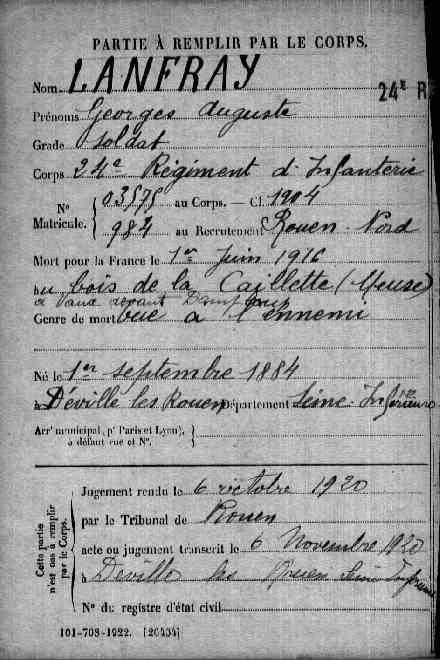 PARTIE À REMPLIR PAR LE CORPS.
Nom LANFRAY
24E R
Prénoms Georges Auguste
Grade Soldat
Corps 24e Régiment d'Infanterie
N° Matricule. { 03575 au Corps. — Cl. 1904
984 au Recrutement Rouen Nord
Mort pour la France le 1er Juin 1916
au bois de la Caillette (Meuse)
à Vaux devant
Genre de mort tué à l'ennemi
Né le 1er septembre 1884
à Déville les Rouen Département Seine Inférieure
Arrt municipal, pr Paris et Lyon), à défaut rue et N°. }
Cette partie n'est pas à remplir par le Corps.
Jugement rendu le 6 octobre 1920
par le Tribunal de Rouen
acte ou jugement transcrit le 6 Novembre 1920
à Déville les Rouen Seine Inférieure
N° du registre d'état civil
101-708-1922. [26434]